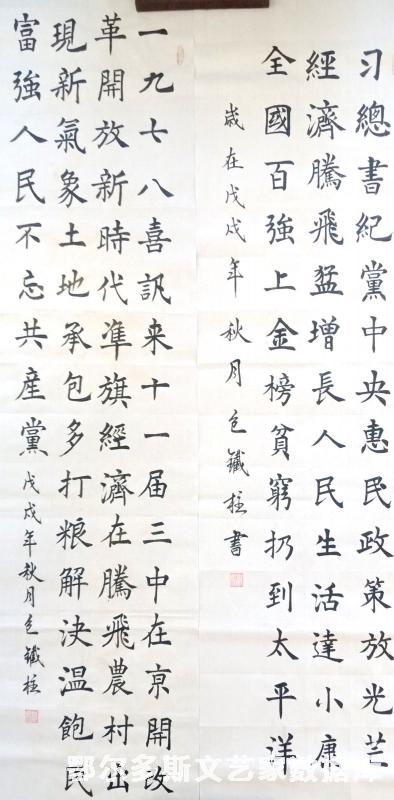 习總書紀黨中央惠民政策放光芒
經濟騰飛猛增長人民生活達小康
全國百強上金榜貧窮扔到太平洋
歲在戊戌年秋月包鐵柱書
一九七八喜訊来十一届三中在亰開改
革開放新時代準旗經濟在騰飛農村出
現新氣象土地承包多打粮解決温飽民
富強人民不忘共産黨戊戌年秋月包鐵柱
鄂尔多斯文艺家数据库